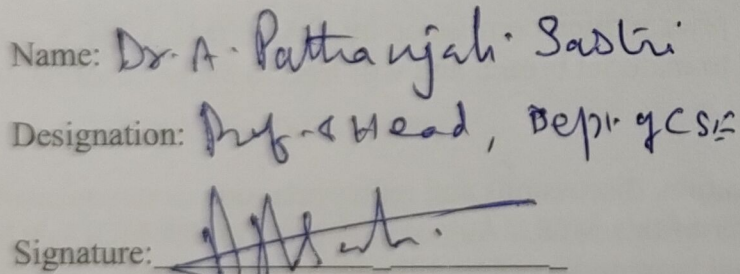 Name: Dr. A. Pathanjali Sastri
Designation: Prof. & Head, Dept. of CSE
Signature: